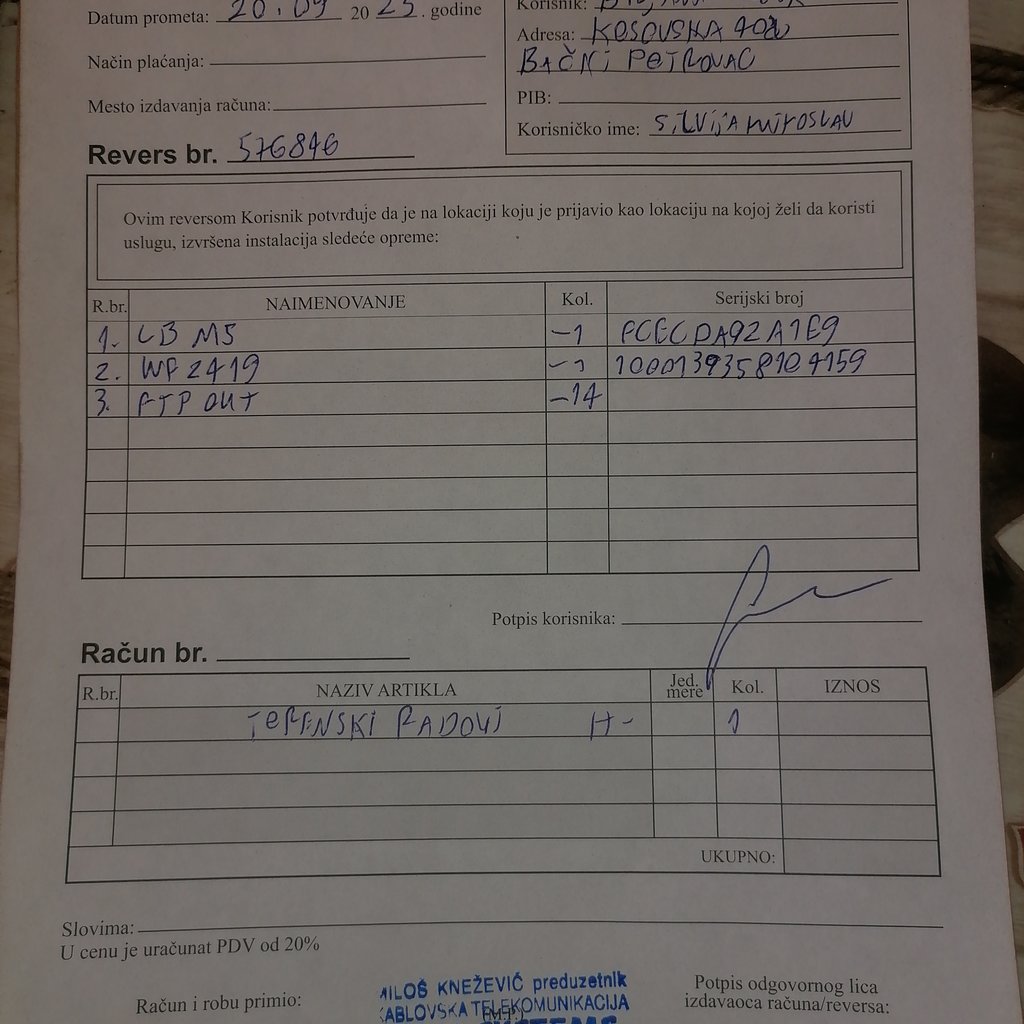 Datum prometa: 20.09 20 25. godine
Korisnik:
Adresa: KOSOVSKA
BAČKI PETROVAC
Način plaćanja:
PIB:
Mesto izdavanja računa:
Korisničko ime: SILVIJA MIROSLAV
Revers br. 576846
Ovim reversom Korisnik potvrđuje da je na lokaciji koju je prijavio kao lokaciju na kojoj želi da koristi
uslugu, izvršena instalacija sledeće opreme:
R.br. NAIMENOVANJE Kol. Serijski broj
1. LB M5 -1 FCECDA92A1E9
2. WF 2419 -1
3. FTP OUT -14
Potpis korisnika:
Račun br.
R.br. NAZIV ARTIKLA Jed. mere Kol. IZNOS
TERENSKI RADOVI H- 1
UKUPNO:
Slovima:
U cenu je uračunat PDV od 20%
Račun i robu primio:
MILOŠ KNEŽEVIĆ preduzetnik
KABLOVSKA TELEKOMUNIKACIJA
(M.P.)
SYSTEMS
Potpis odgovornog lica
izdavaoca računa/reversa: